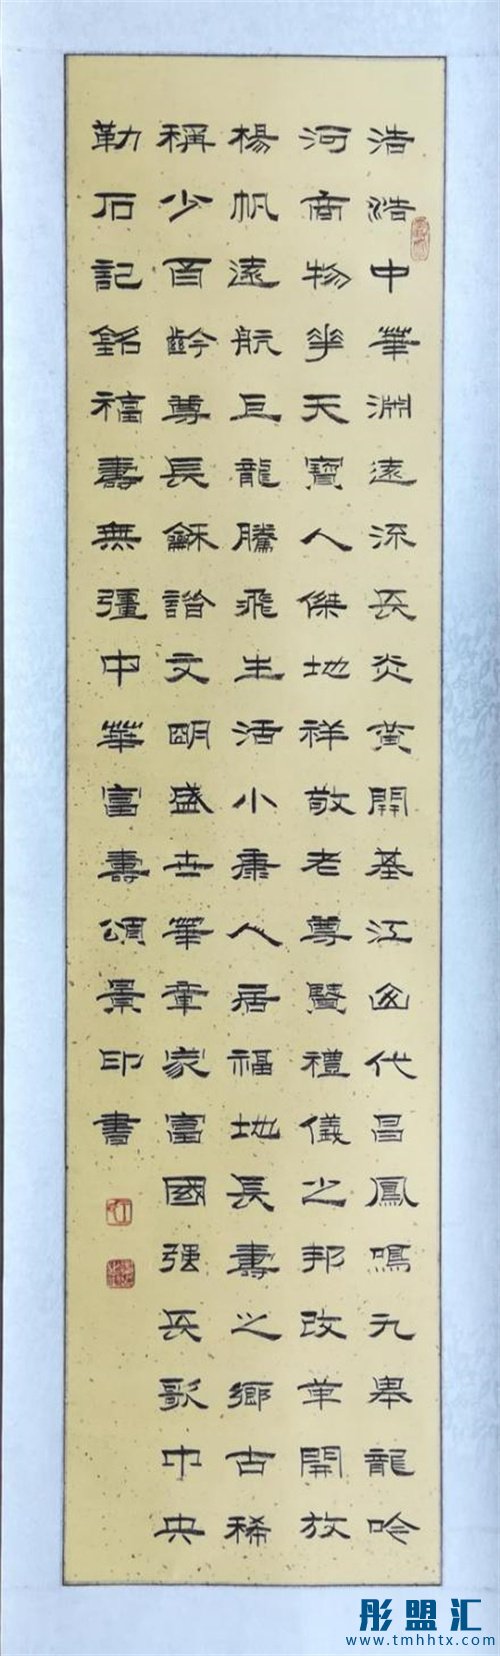 浩浩中華淵遠流長炎黄開基江山代昌鳳鳴九皋龍吟
河商物華天寶人傑地祥敬老尊賢禮儀之邦改革開放
楊帆遠航巨龍騰飛生活小康人居福地長壽之鄉古稀
稱少百齡尊長龢諧文朙盛世華章家富國强長歌中央
勒石記銘福壽無彊中華富壽頌景印書
彤盟汇
www.tmhhtx.com